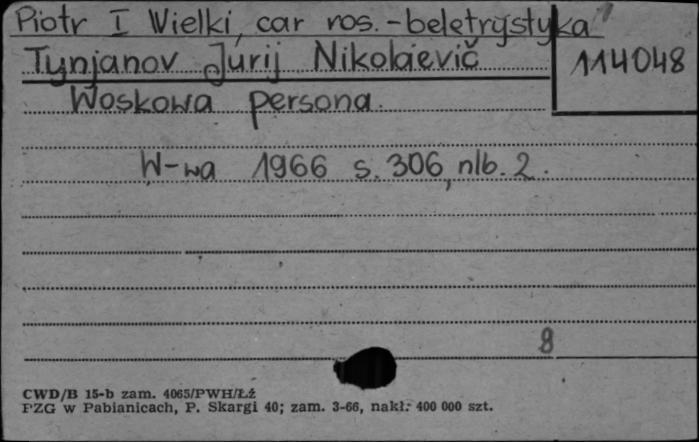 Piotr I Wielki, car ros. - beletrystyka
Tynjanov Jurij Nikolaevič
114048
Woskowa persona.
W-wa 1966 s. 306, nlb. 2.
8
CWD/B 15-b zam. 4065/PWH/Łź
PZG w Pabianicach, P. Skargi 40; zam. 3-66, nakł. 400 000 szt.